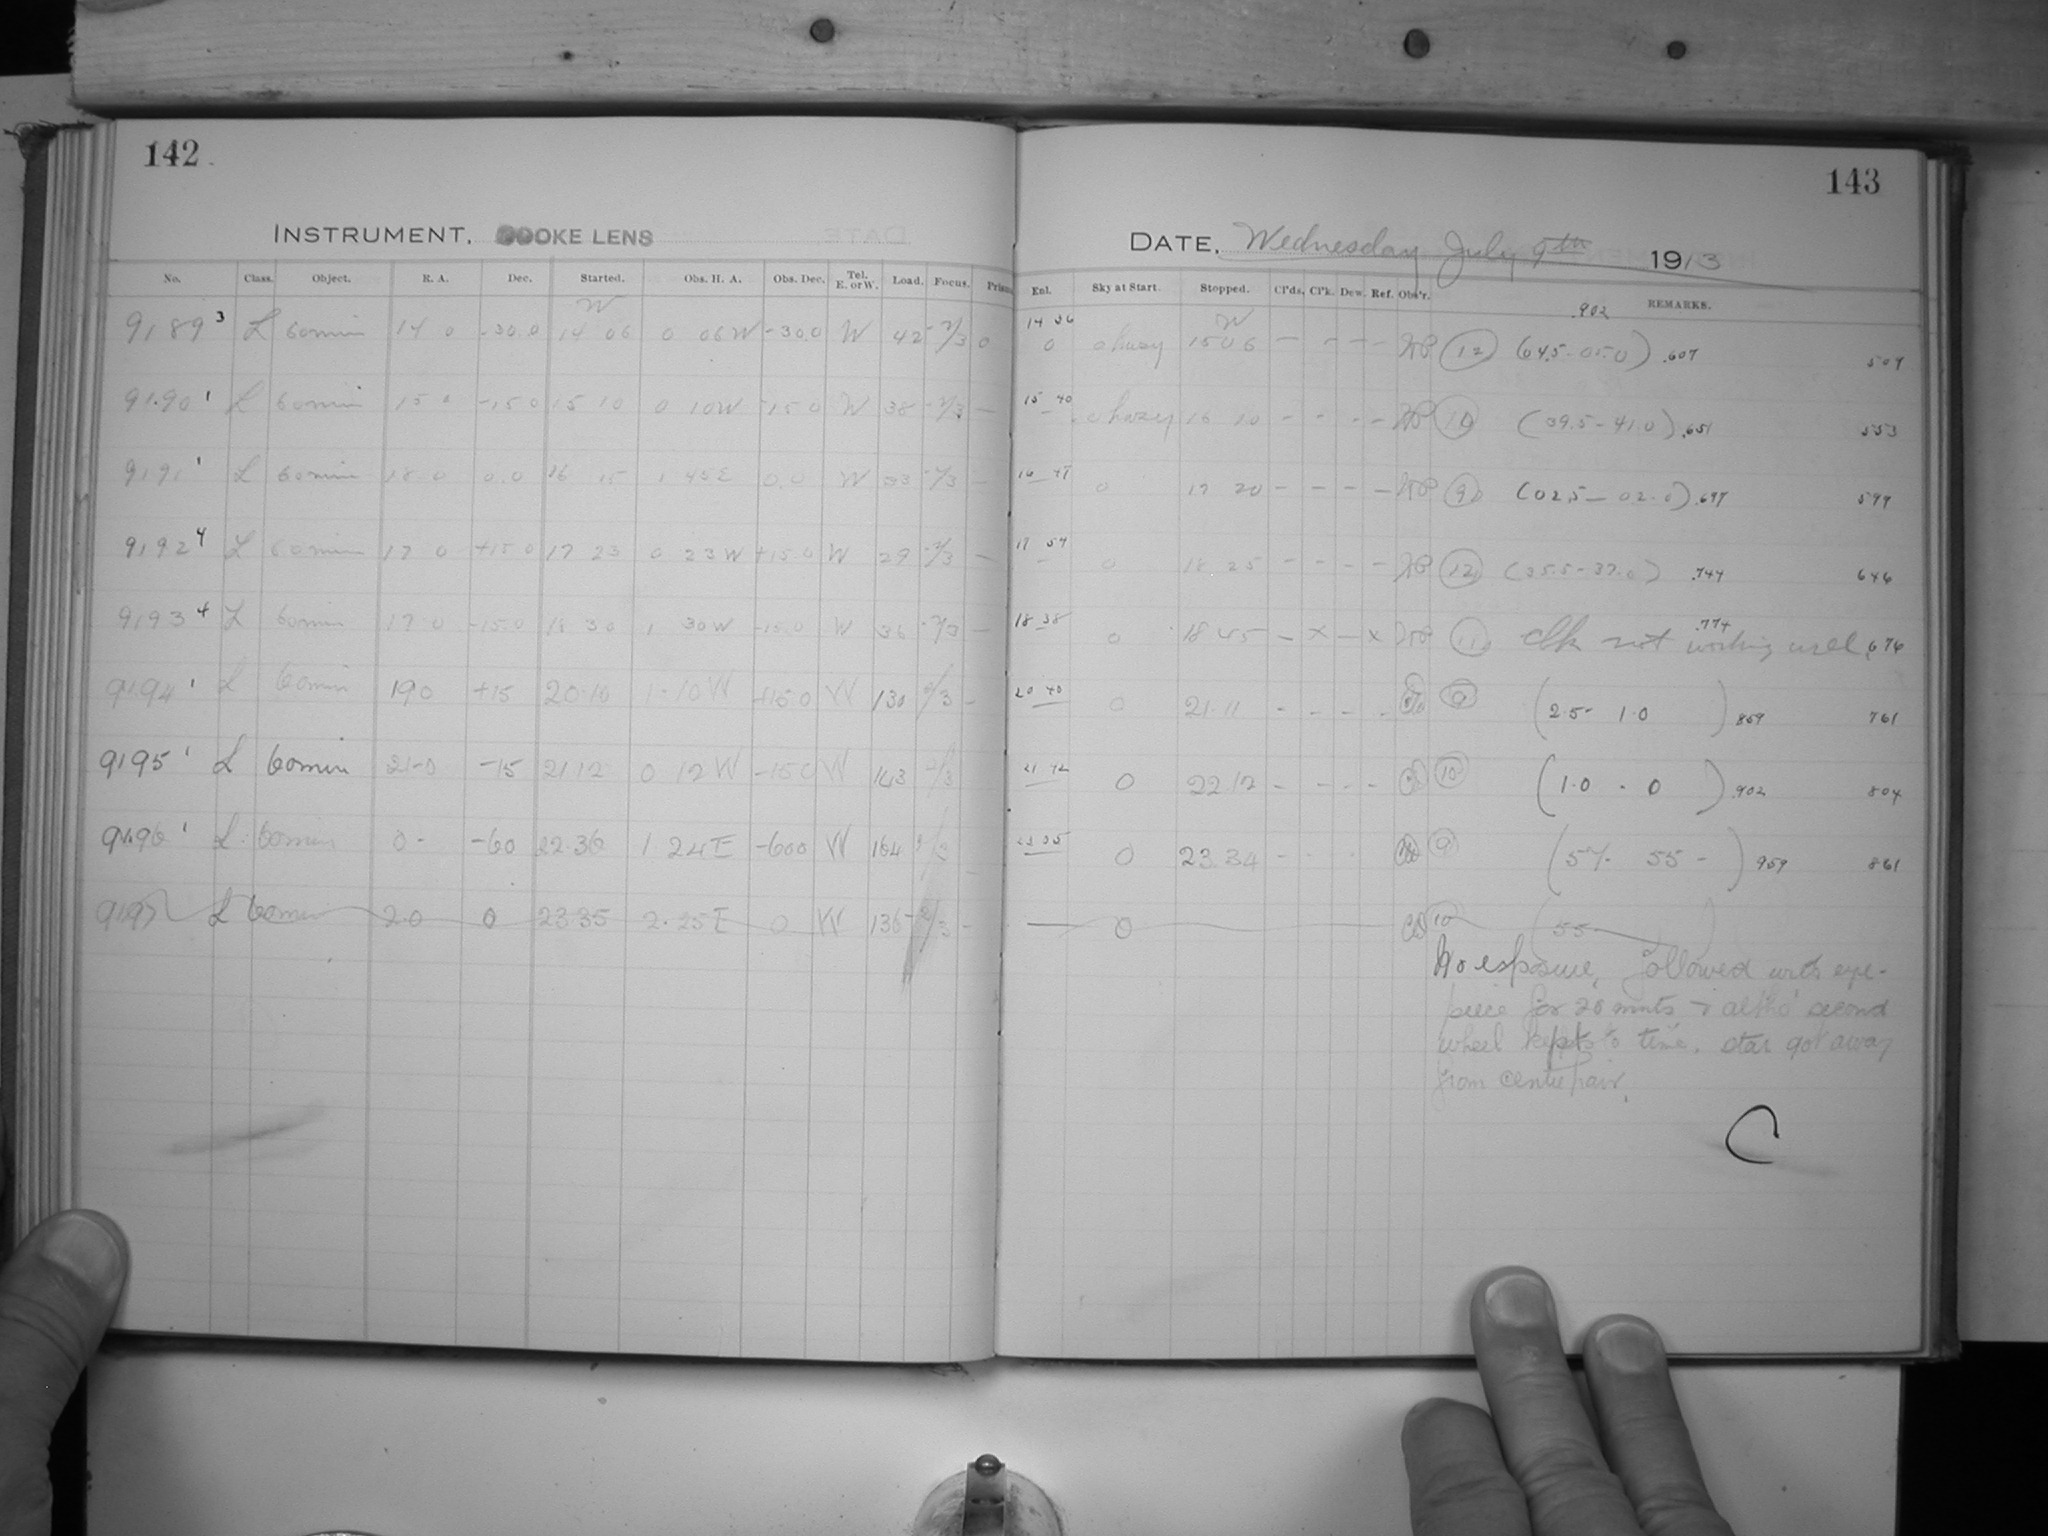 142
143
INSTRUMENT. COOKE LENS
DATE. Wednesday July 9th 1913
No. Class. Object. R. A. Dec. Started. Obs. H. A. Obs. Dec. Tel. E. or W. Load. Focus. Prism
Enl. Sky at Start. Stopped. Cl'ds. Cl'k. Dew. Ref. Obs'r. REMARKS.
W W .902
9189 3 L 60 min 14 0 -30.0 14 06 0 06 W -30.0 W 42 -2/3 0 14 36 0 o hazy 15 06 - - - - (12) (04.5 - 05.0) .607 509
9190 1 L 60 min 15 0 -15 0 15 10 0 10W -15 0 W 38 -2/3 - 15 40 - o hazy 16 10 - - - - (10) (39.5 - 41.0) .651 553
9191 1 L 60 min 18 0 0.0 16 15 1 45E 0.0 W 33 -2/3 - 16 47 0 17 20 - - - - (9) (02.5 - 02.0) .697 599
9192 4 L 60 min 17 0 +15 0 17 23 0 23 W +15 0 W 29 -2/3 - 17 54 - 0 18 25 - - - - (12) (35.5 - 37.0) .744 646
9193 4 L 60 min 17 0 -15.0 18 30 1 30W -15.0 W 36 -2/3 - 18 38 0 18 45 - x - x (11) Clk not working well .774 676
9194 1 L 60 min 190 +15 20.10 1.10 W +15 0 W 130 2/3 - 20 40 0 21.11 - - - - (9) (2.5 - 1.0) 859 761
9195 1 L 60 min 21-0 -15 21 12 0 12 W -15 0 W 143 2/3 21 42 0 22 12 - - - - (10) (1.0 - 0) .902 804
9196 1 L 60 min 0 - -60 22.36 1 24 E -600 W 164 23 05 0 23.34 - - - (9) 55 - ) 959 861
9197 L 60 min 20 0 23 35 2.25 E 0 W 136 2/3 - — 0 (10) ( 55 )
No exposure, followed with eye-
piece for 20 mnts & altho' second
wheel kept to time, star got away
from centre hair.
C